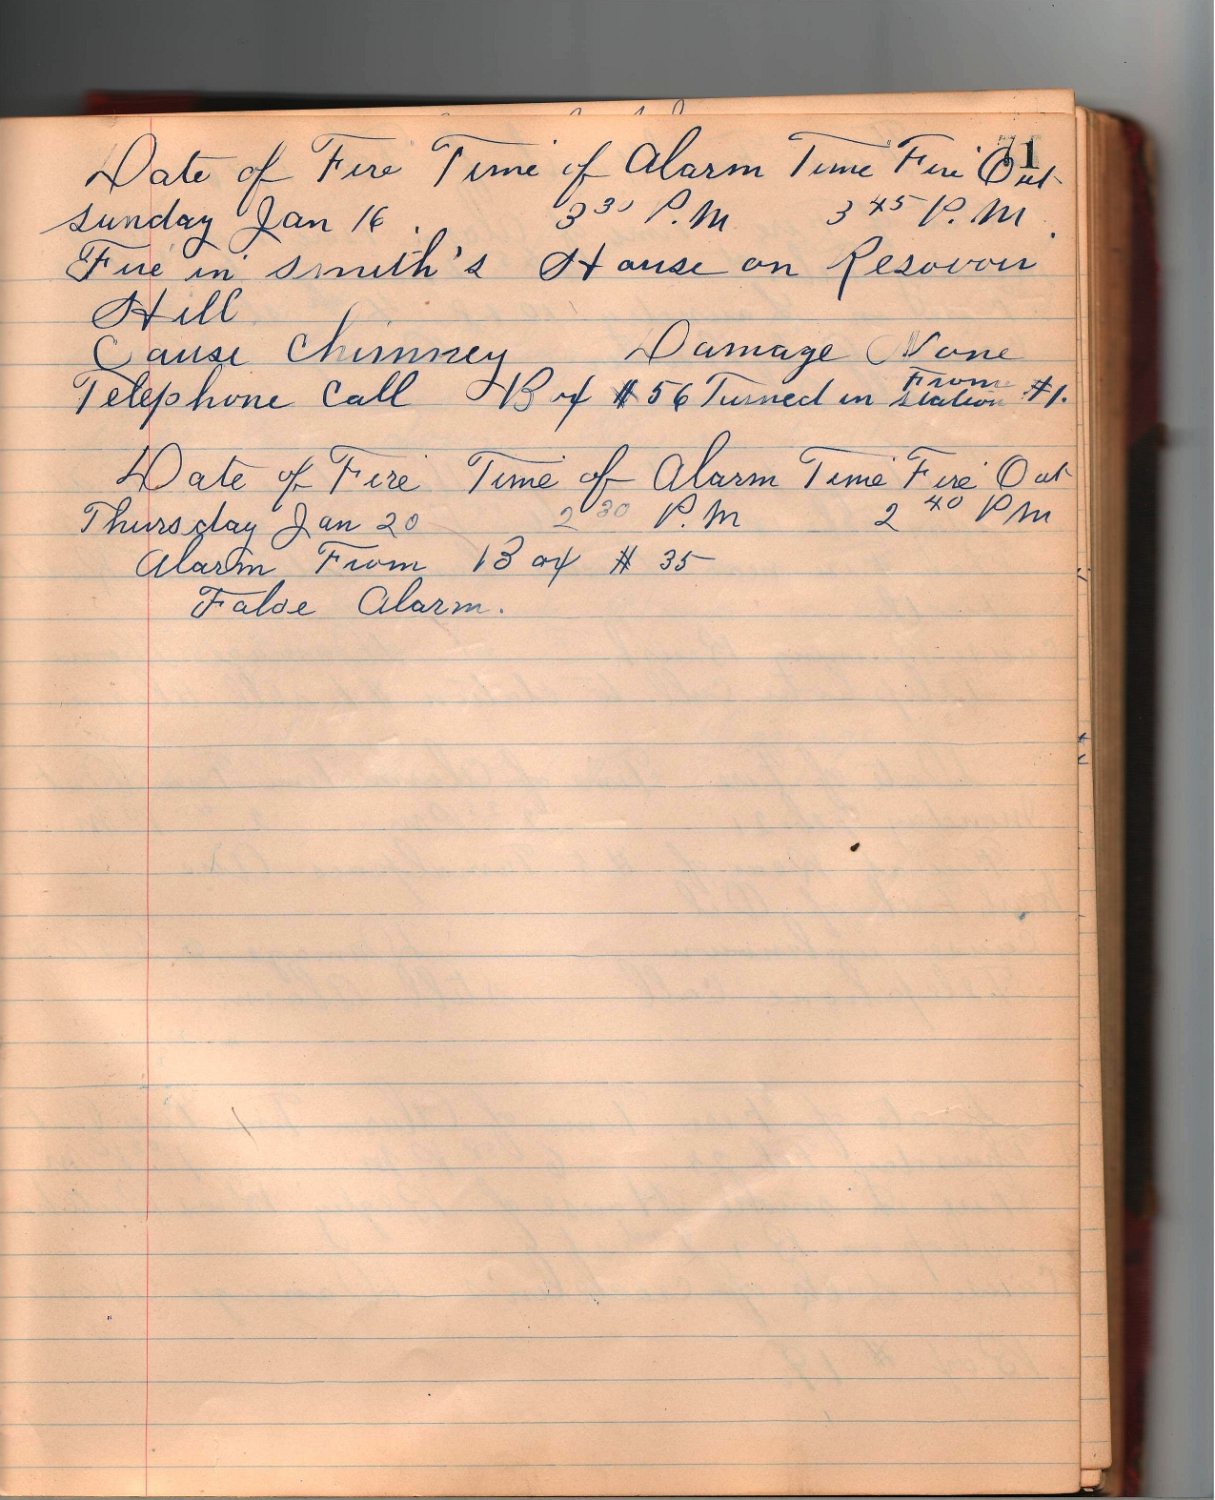 71
Date of Fire Time of Alarm Time Fire Out
Sunday Jan 16. 3 30 P.M 3 45 P.M.
Fire in Smith's House on Resovoir
Hill
Cause Chimney Damage None
Telephone Call Box #56 Turned in From Station #1.
Date of Fire Time of Alarm Time Fire Out
Thursday Jan 20 2 30 P.M 2 40 P M
Alarm From Box # 35
False Alarm.